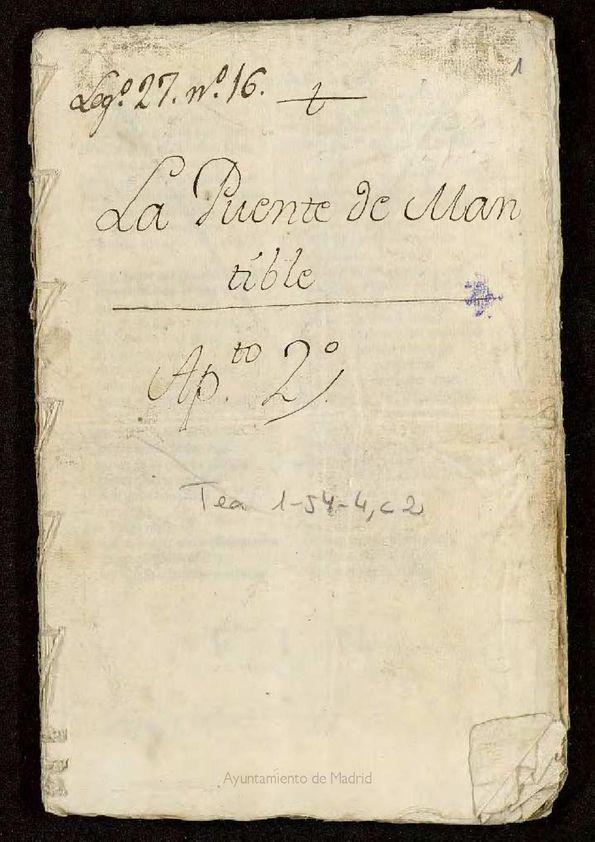 1
Leg.º 27. n.º 16.
La Puente de Man
tible
Ap.to 2.º
Tea 1-54-4, c2
Ayuntamiento de Madrid